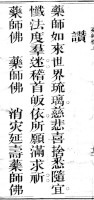 讚
藥師如來世琉璃慈悲喜捨悉隨宜
懺法度羣迷稽首皈依所願滿求祈
藥師佛　藥師佛　消灾延壽藥師佛